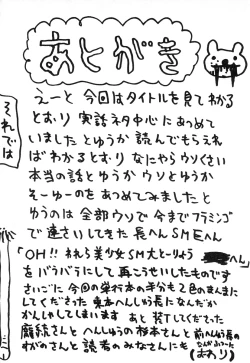 あとがき
えーと 今回はタイトルを見てわかる
とおり 実話ネタ中心にあつめて
いました とゆうか 読んでもらえれ
ばわかるとおり なにやらウソくさい
本当の話とゆうかウソとゆうか
そーゆーのをあつめてみました と
ゆうのは全部ウソで今までフラミンゴ
で連さいしてきた長へんSMEへん
「OH!! われら美少女SM大とーりょう へん」
をバラバラにして再こうせいしたものです
さいごに 今回の単行本の半分も2色のまんまに
してくださった 東本へんしゅう長になんだか
かんしゃしてしまいます あと 装丁してくださった
へんしゅうの杉本さんと 前へんしゅう長の
すがのさんと 読者のみなさんにも
(おわり)
それでは